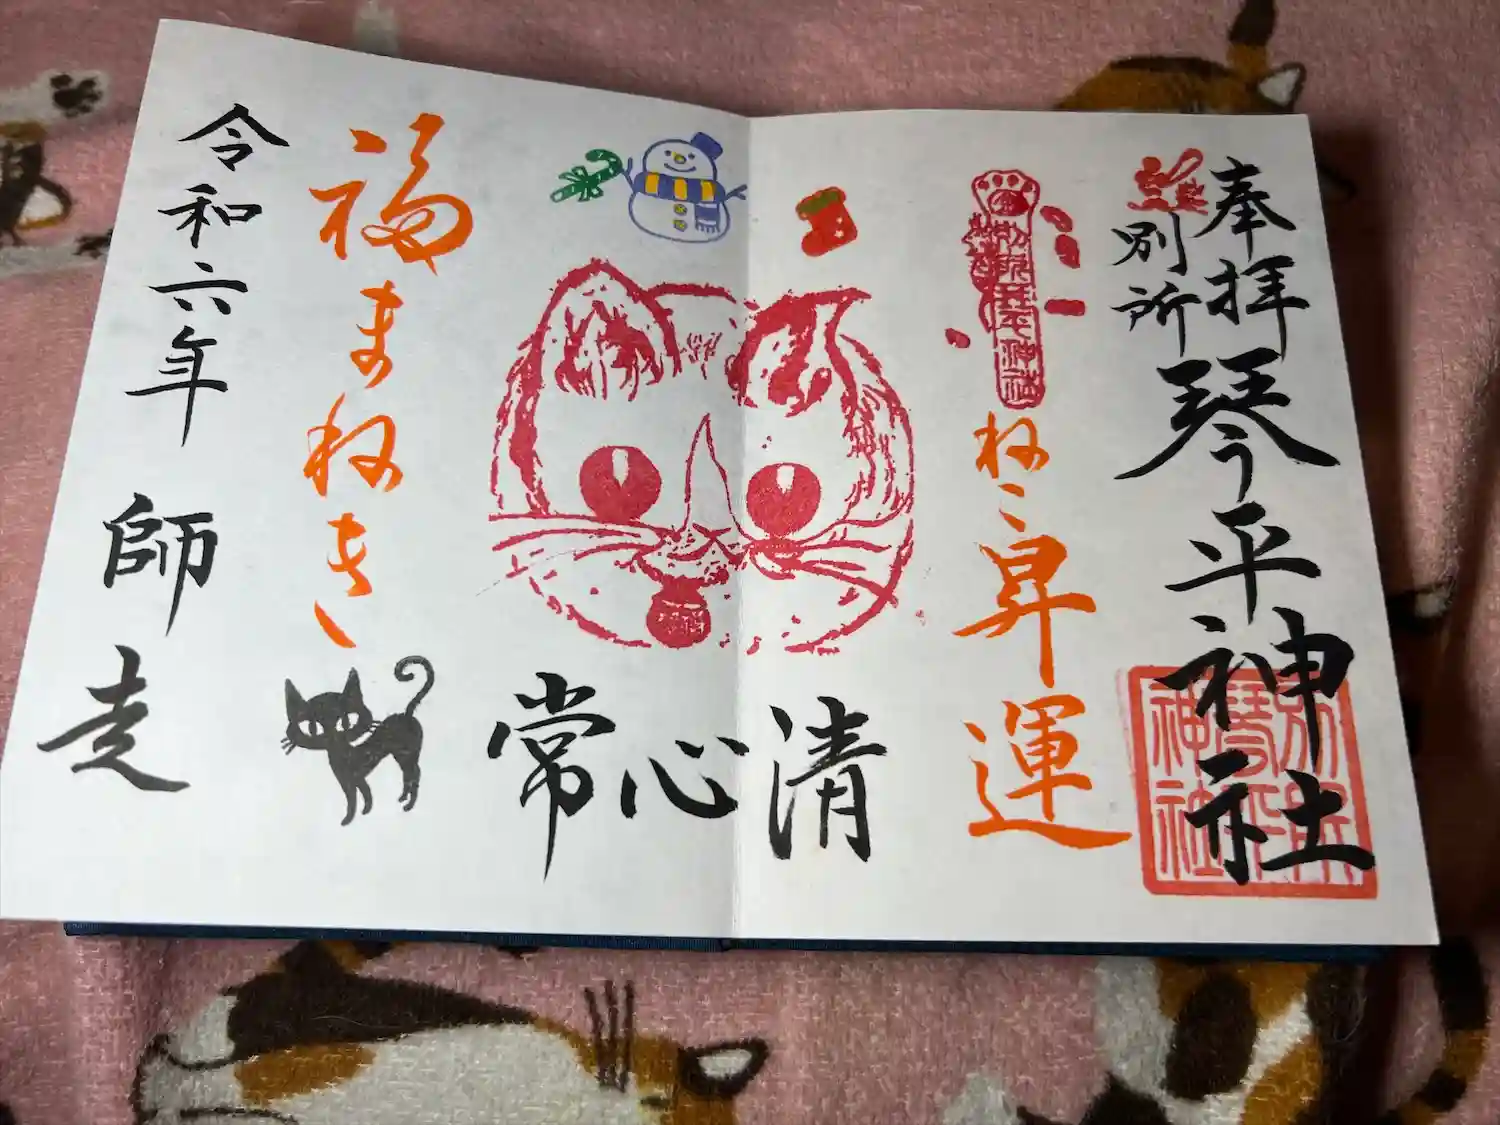 奉拝
別所
琴平神社
別所琴平神社
別所琴平神社
ねこ昇運
清心常
福まねき
令和六年 師走